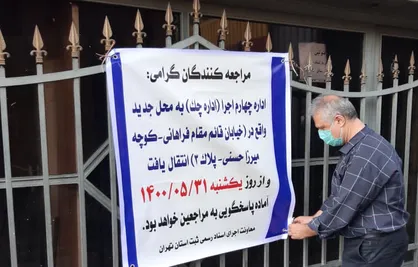 مراجعه کنندگان گرامی:
اداره چهارم اجرا (اداره چک) به محل جدید
واقع در (خیابان قائم مقام فراهانی-کوچه
میرزا حسنی- پلاک ۲) انتقال یافت
و از روز یکشنبه ۱۴۰۰/۰۵/۳۱
آماده پاسخگویی به مراجعین خواهد بود.
معاونت اجرای اسناد رسمی ثبت استان تهران